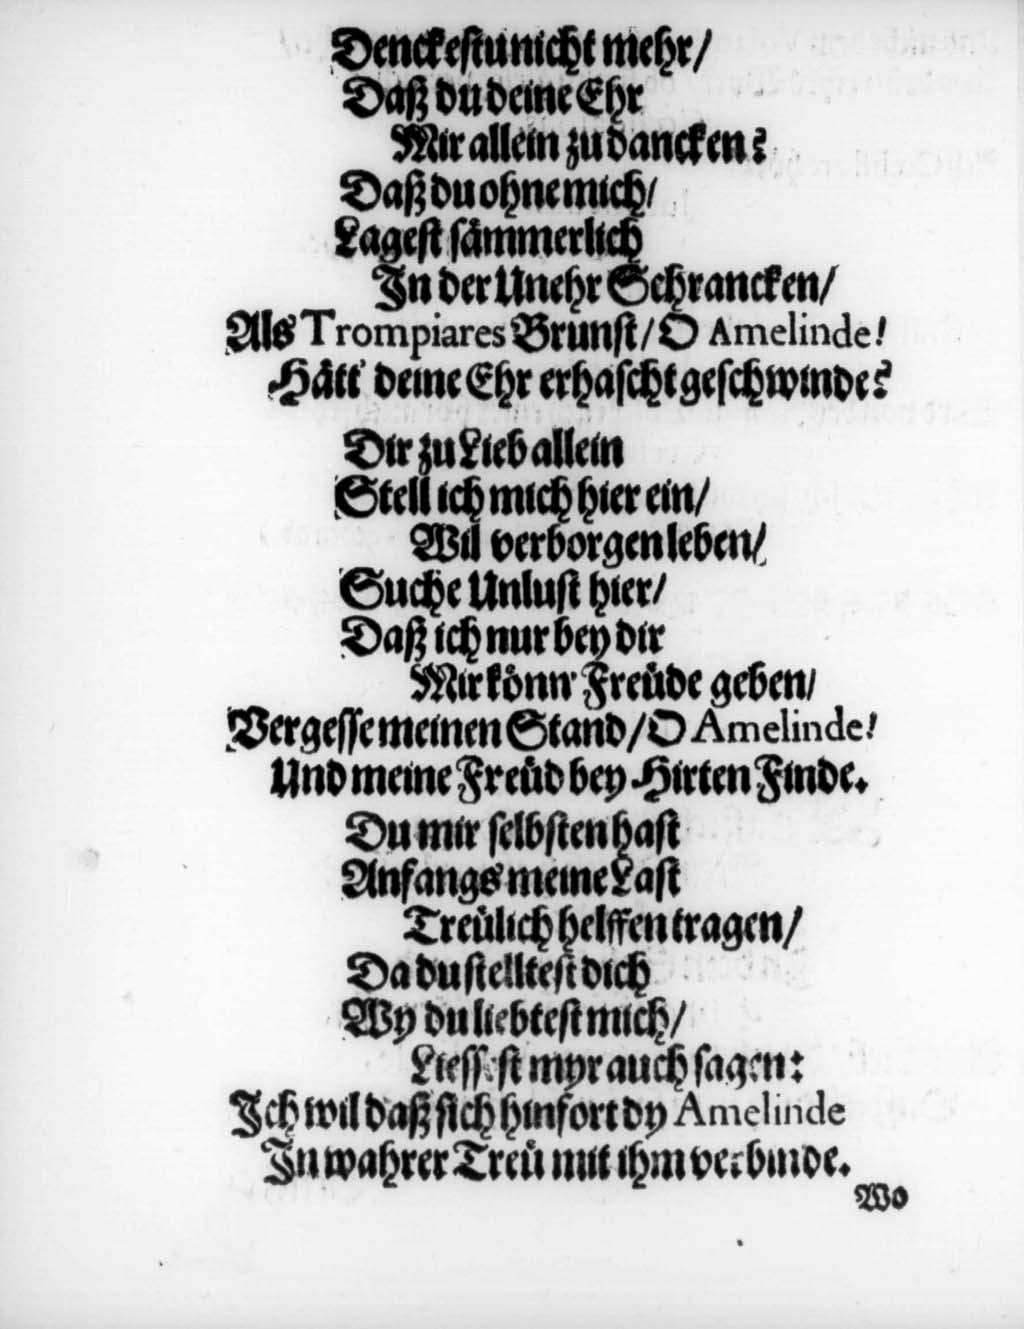 Denckestu nicht mehr/
Daß du deine Ehr
Mir allein zu dancken?
Daß du ohne mich/
Lagest sämmerlich
In der Unehr Schrancken/
Als Trompiares Brunst/ O Amelinde!
Hätt' deine Ehr erhascht geschwinde?
Dir zu Lieb allein
Stell ich mich hier ein/
Wil verborgen leben/
Suche Unlust hier/
Daß ich nur bey dir
Mir könn' Freüde geben/
Vergesse meinen Stand/ O Amelinde!
Und meine Freüd bey Hirten Finde.
Du mir selbsten hast
Anfangs meine Last
Treülich helffen tragen/
Da du stelltest dich
Wy du liebtest mich/
Liessest myr auch sagen:
Ich wil daß sich hinfort dy Amelinde
In wahrer Treü mit ihm verbinde.
Wo